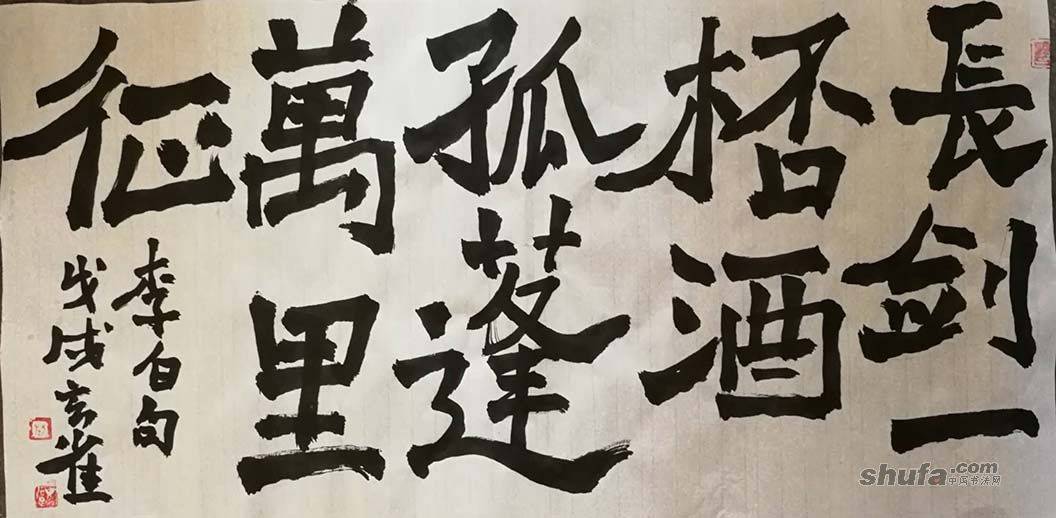 長剑一
桮酒
孤蓬
萬里
征
李白句
戊戌
shufa.com
中国书法网